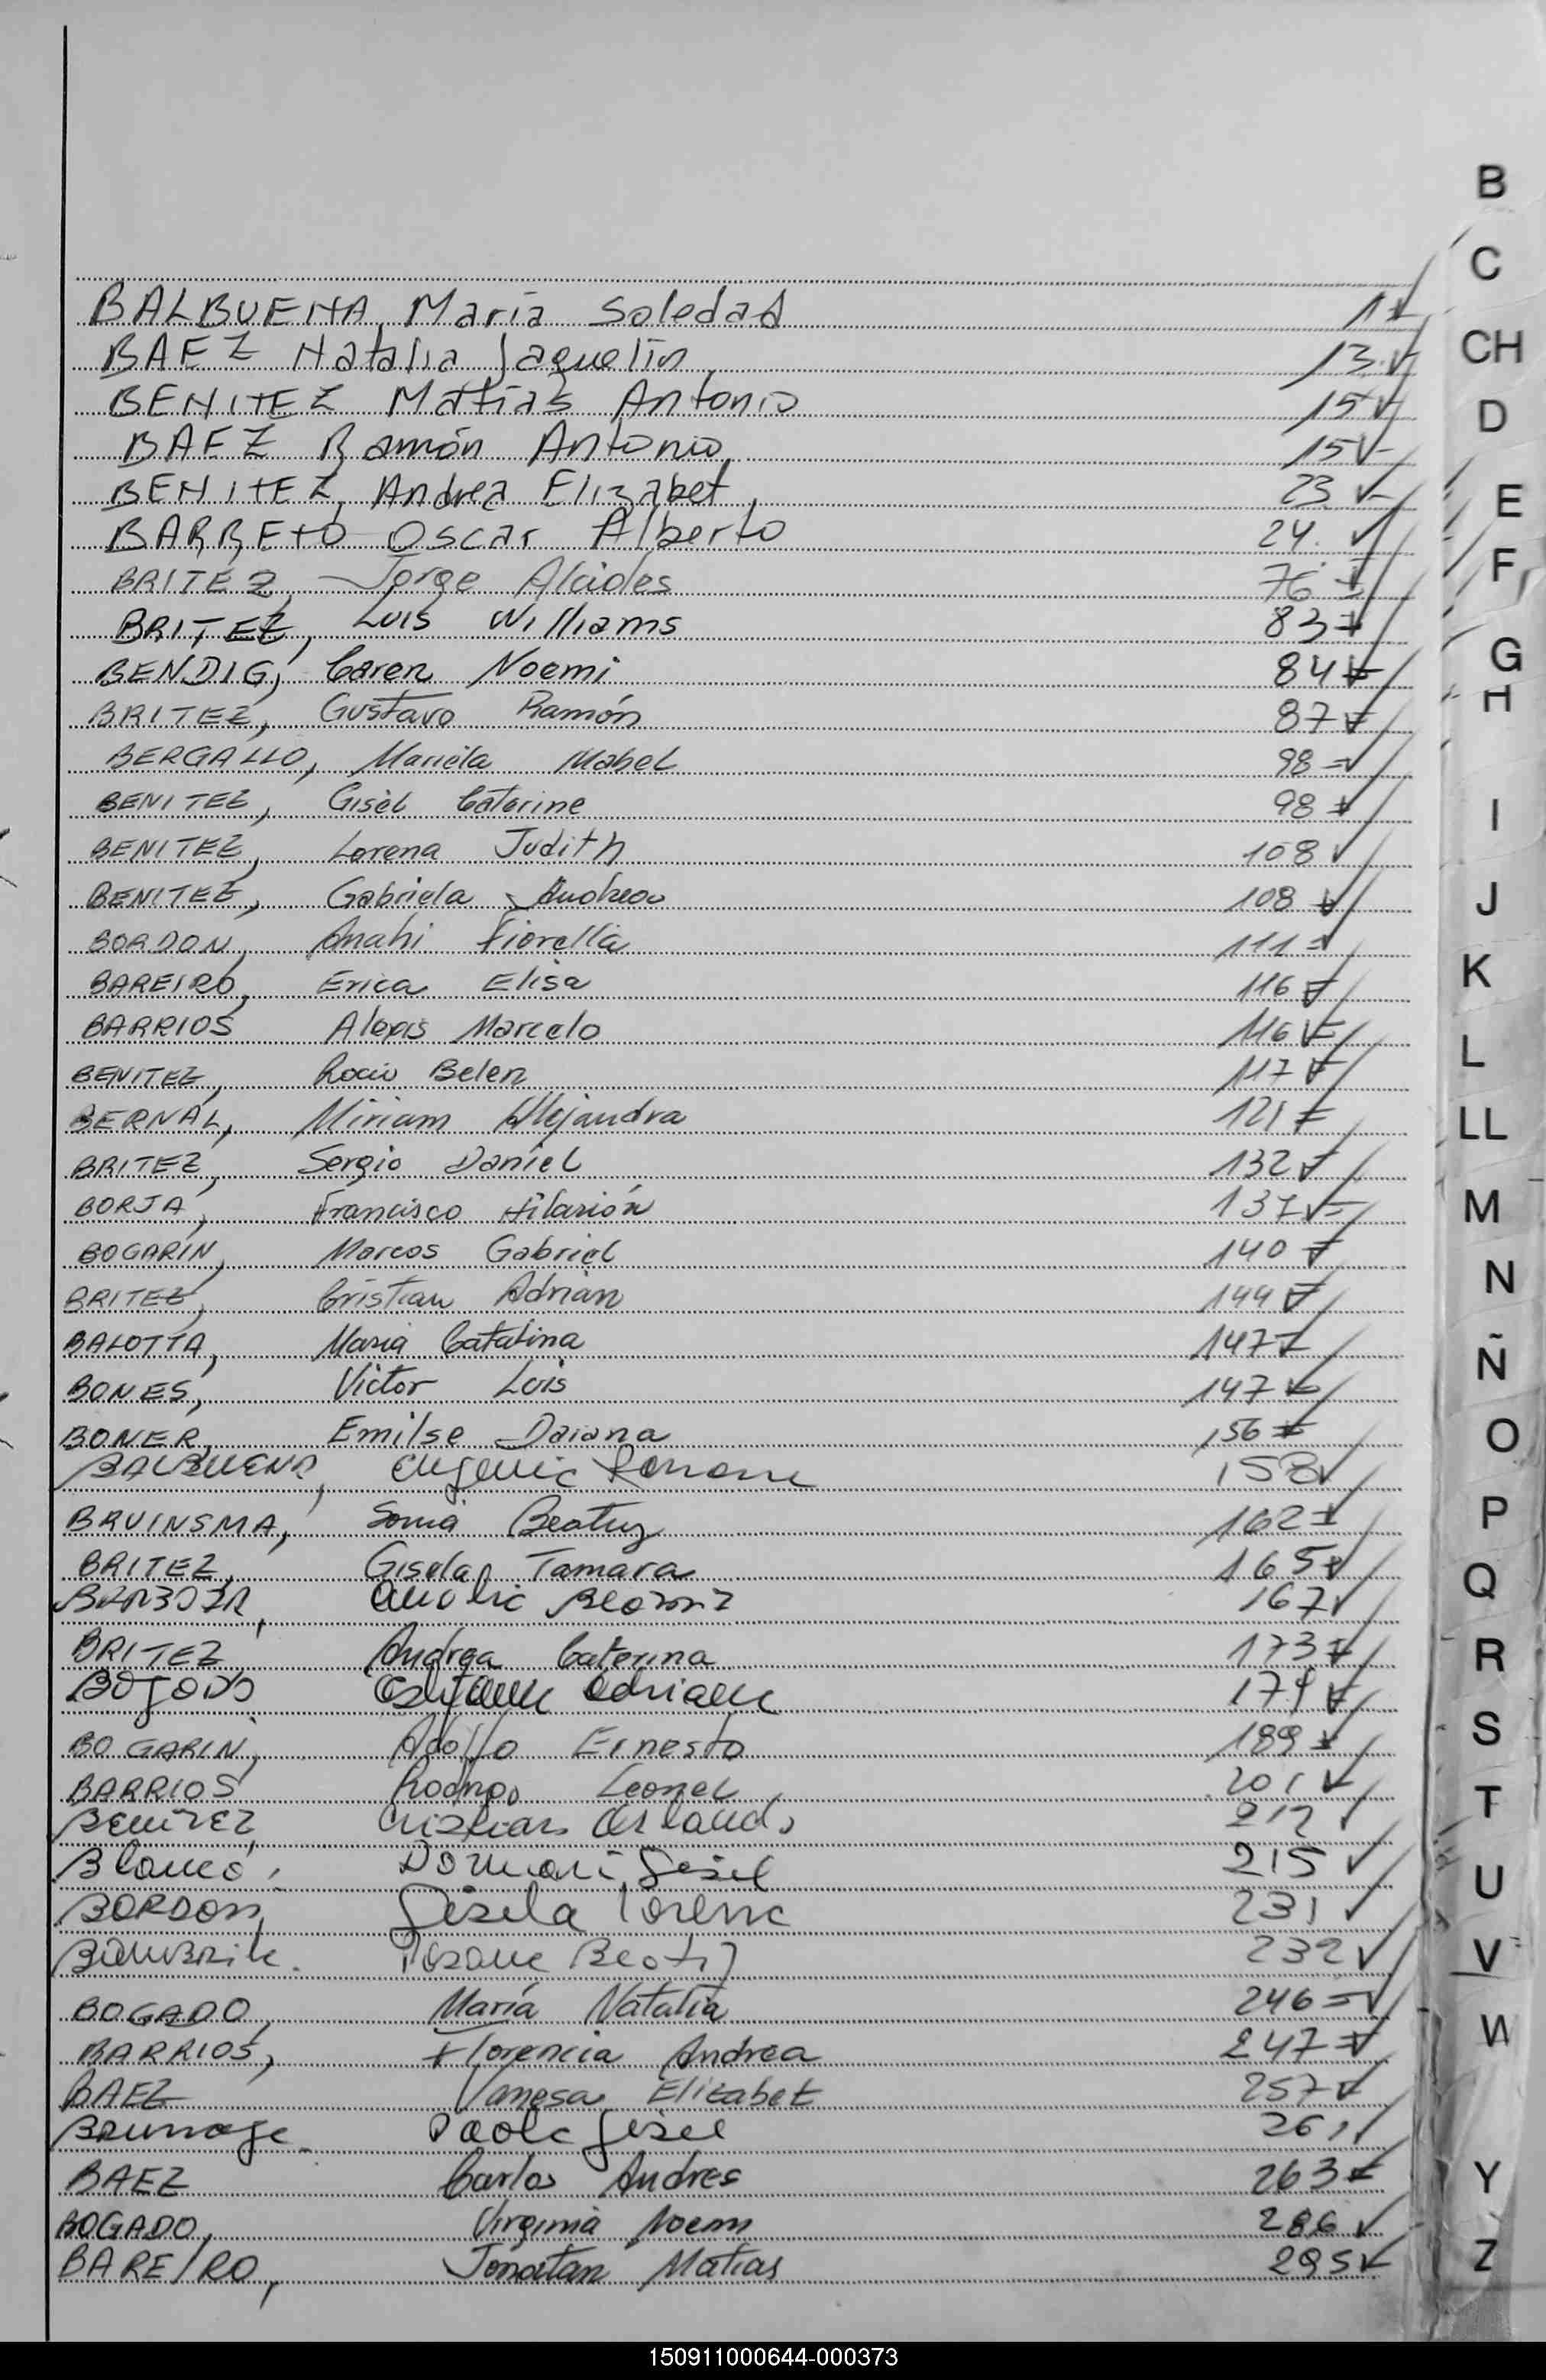 BALBUENA, María Soledad 1
BAEZ Natalia Jaquelin 13
BENITEZ Matías Antonio 15
BAEZ Ramón Antonio 15
BENITEZ, Andrea Elizabet 23
BARRETO Oscar Alberto 24
BRITEZ, Jorge Alcides 76
BRITEZ, Luis Williams 83
BENDIG, Caren Noemi 84
BRITEZ, Gustavo Ramón 87
BERGALLO, Mariela Mabel 98
BENITEZ, Gisèl Caterine 98
BENITEZ, Lorena Judith 108
BENITEZ, Gabriela Andrea 108
BORDON, Anahi Fiorella 111
BAREIRO, Erica Elisa 116
BARRIOS Alexis Marcelo 116
BENITEZ, Rocio Belen 117
BERNAL, Miriam Alejandra 121
BRITEZ, Sergio Daniel 132
BORJA, Francisco Hilarión 137
BOGARIN, Marcos Gabriel 140
BRITEZ, Cristian Adrian 144
BALOTTA, Maria Catalina 147
BONES, Victor Luis 147
BONER, Emilse Daiana 156
BALBUENA, Eugenia Romana 158
BRUINSMA, Sonia Beatriz 162
BRITEZ, Gisela Tamara 165
167
BRITEZ Andrea Caterina 173
Adriana
BOGARIN, Adolfo Ernesto 189
BARRIOS Rodrigo Leonel 201
BENITEZ, Cristian Orlando 212
Blanco, Gisel 215
BORDON, Gisela Lorena 231
Beatriz 232
BOGADO, María Natalia 246
BARRIOS, Florencia Andrea 247
BAEZ Vanesa Elizabet 257
Paola Gisel 261
BAEZ Carlos Andres 263
BOGADO, Virginia Noemi 286
BAREIRO, Jonatan Matias 295
B
C
CH
D
E
F
G
H
I
J
K
L
LL
M
N
Ñ
O
P
Q
R
S
T
U
V
W
Y
Z
150911000644-000373